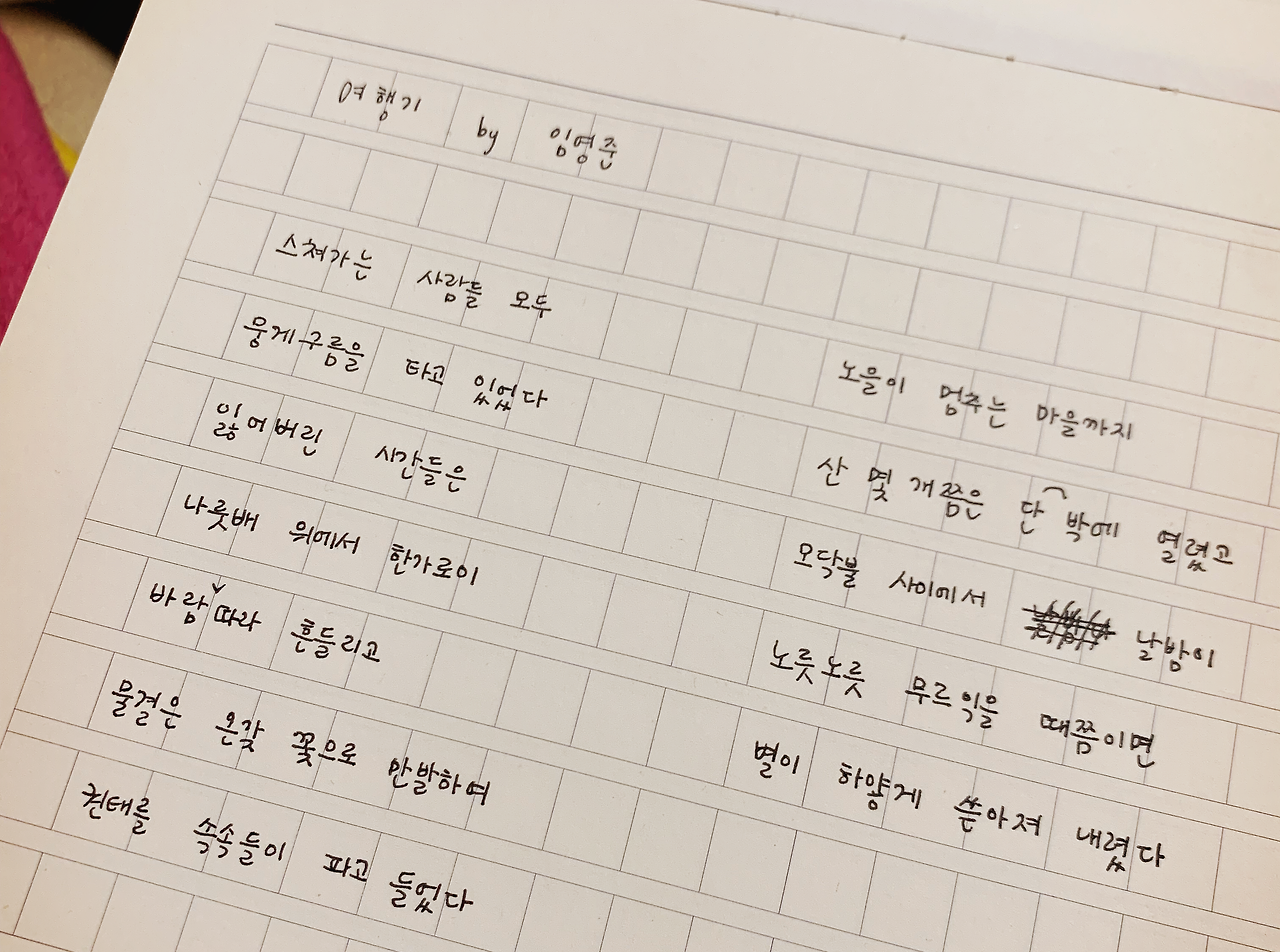 여행기 by 임영준
스쳐가는 사람들 모두
뭉게구름을 타고 있었다
잃어버린 시간들은
나룻배 위에서 한가로이
바람 따라 흔들리고
물결은 온갖 꽃으로 만발하여
권태를 쏙쏙들이 파고 들었다
노을이 멈추는 마을까지
산 몇 개쯤은 단박에 열렸고
모닥불 사이에서 날밤이
노릇노릇 무르익을 때쯤이면
별이 하얗게 쏟아져 내렸다